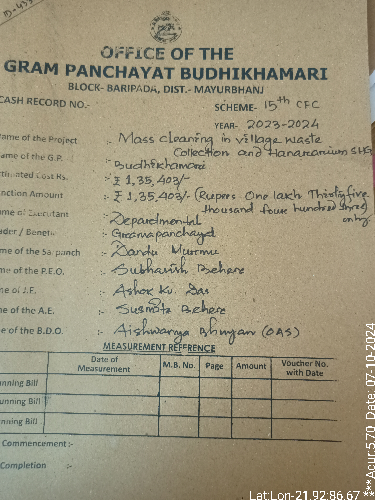 ID-433
OFFICE OF THE
GRAM PANCHAYAT BUDHIKHAMARI
BLOCK- BARIPADA, DIST.- MAYURBHANJ
CASH RECORD NO.-
SCHEME- 15th CFC
YEAR- 2023-2024
ame of the Project :- Mass cleaning in village waste
Collection and Hanamanium SHG
ame of the G.P. :- Budhikhamari
timated Cost Rs. :- ₹ 1,35,403/-
nction Amount :- ₹ 1,35,403/- (Rupees One lakh Thirtyfive
thousand four hundred three)
only
ame of Executant :- Departmental
ader / Benefic :- Grampanchayat
me of the Sarpanch :- Murmu
me of the P.E.O. :- Behera
me of J.E. :- Ashok Ku. Das
me of the A.E. :- Susmita Behera
e of the B.D.O. :- Aishwarya Bhuyan (OAS)
MEASUREMENT REFERENCE
Date of Measurement M.B. No. Page Amount Voucher No. with Date
unning Bill
unning Bill
unning Bill
Commencement :-
Completion :-
Lat:Lon-21.92:86.67
***Acur:5.70 Date: 07-10-2024